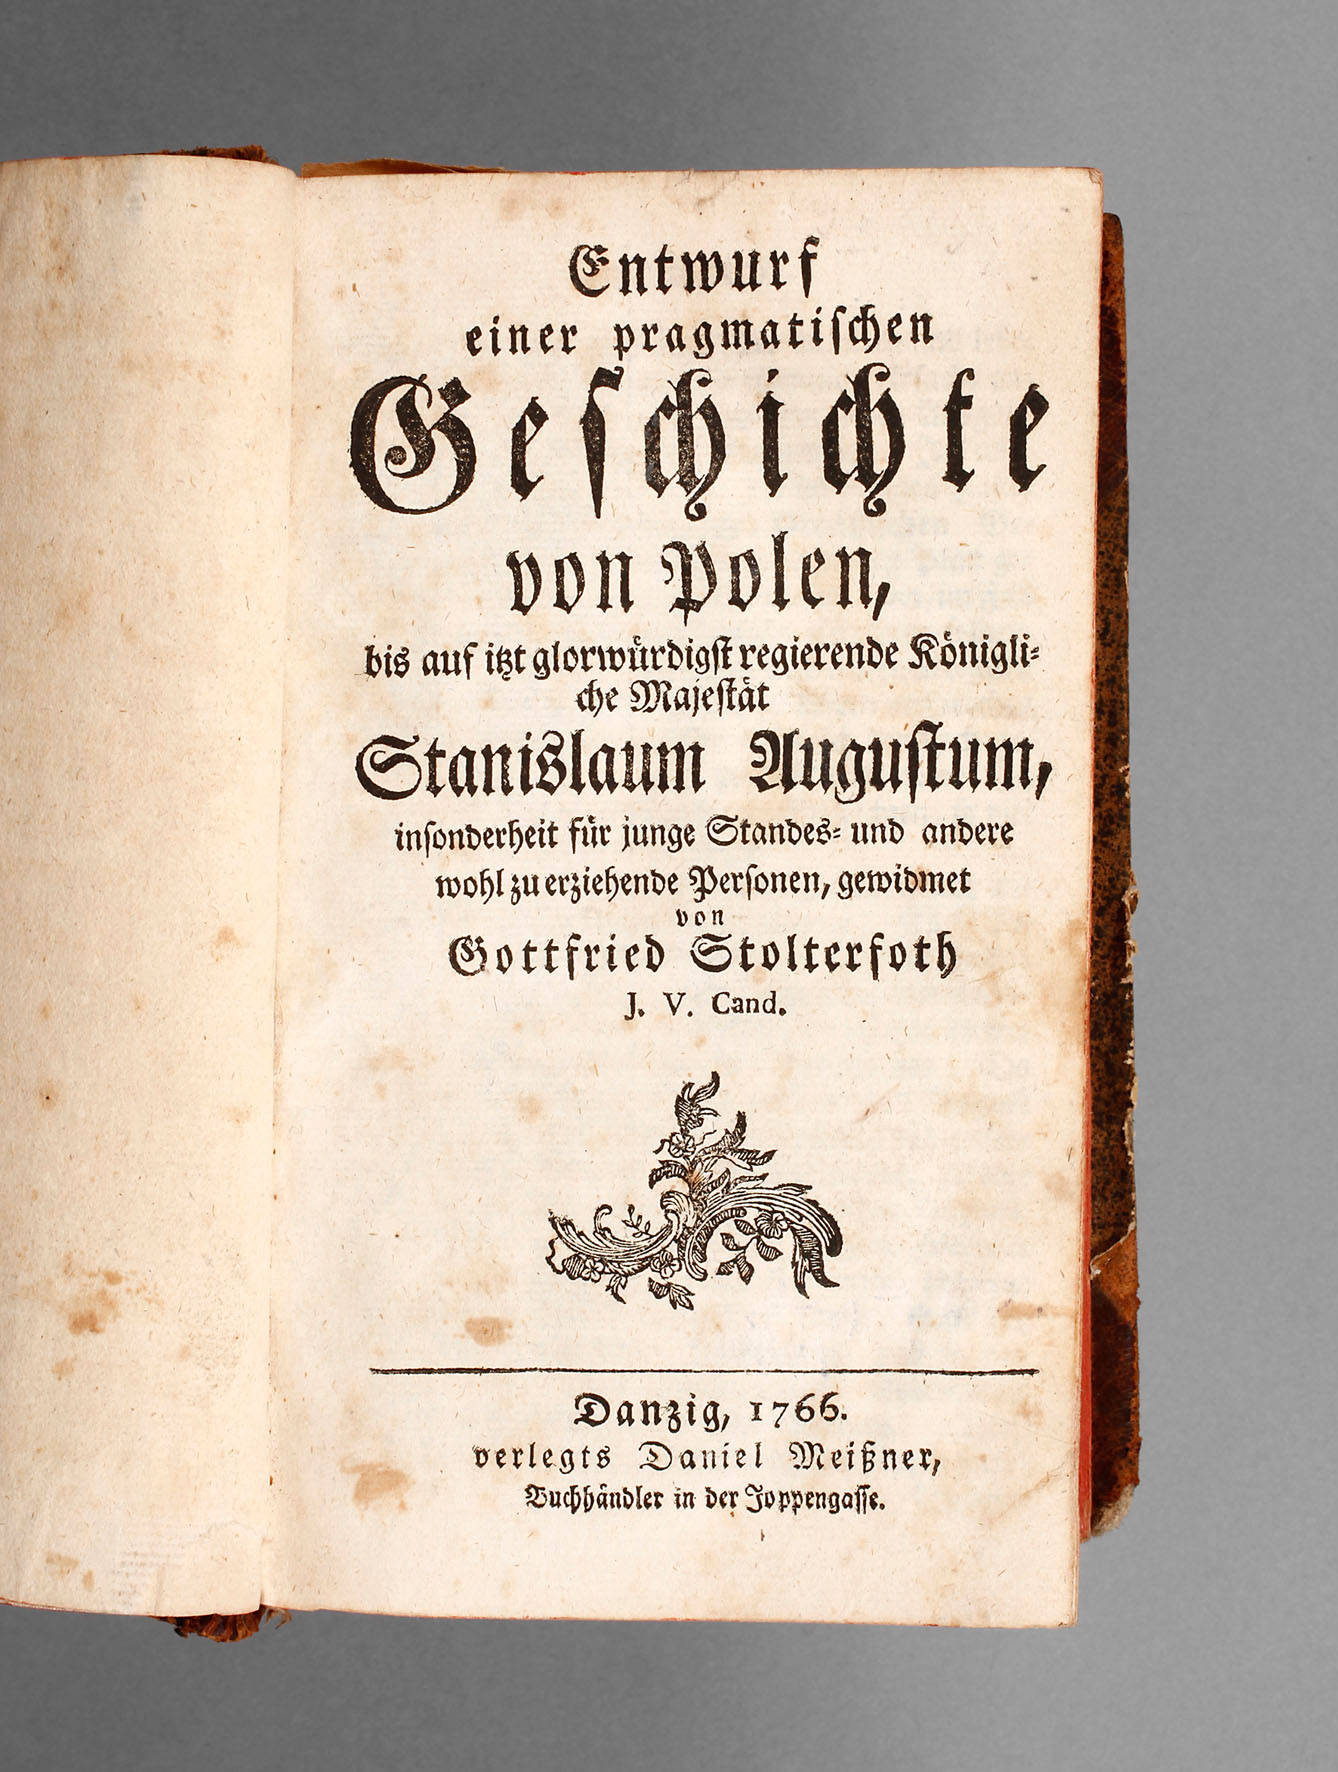 Entwurf
einer pragmatiſchen
Geſchichte
von Polen,
bis auf itzt glorwürdigſt regierende Königli⸗
che Majeſtät
Stanislaum Auguſtum,
inſonderheit für junge Standes⸗ und andere
wohl zu erziehende Perſonen, gewidmet
von
Gottfried Stolterfoth
J. V. Cand.
Danzig, 1766.
verlegts Daniel Meißner,
Buchhändler in der Joppengaſſe.